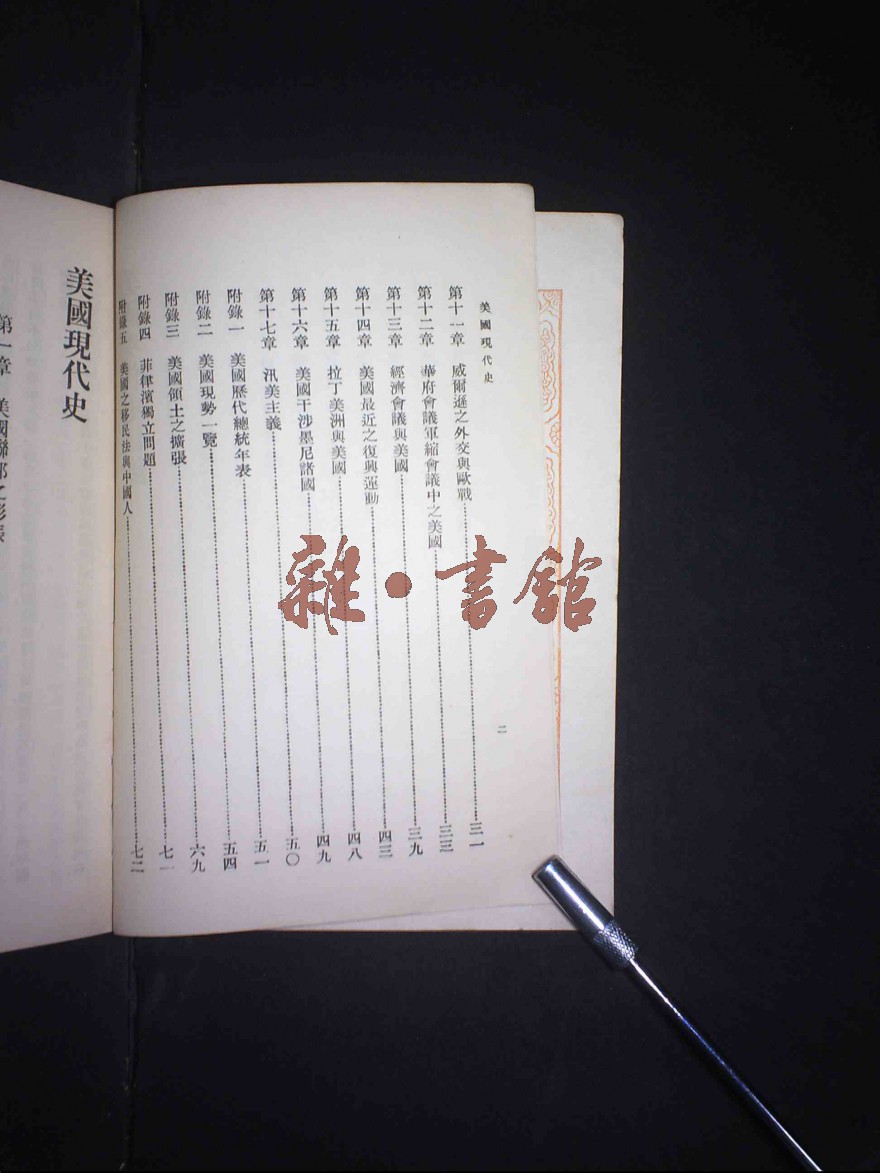 美國現代史
第十一章　威爾遜之外交與歐戰……三一
第十二章　華府會議軍縮會議中之美國……三三
第十三章　經濟會議與美國……三九
第十四章　美國最近之復興運動……四三
第十五章　拉丁美洲與美國……四八
第十六章　美國干涉墨尼諸國……四九
第十七章　汎美主義……五〇
附錄一　美國歷代總統年表……五一
附錄二　美國現勢一覽……五四
附錄三　美國領土之擴張……六九
附錄四　菲律濱獨立問題……七一
附錄五　美國之移民法與中國人……七二
二
美國現代史
第一章　美國聯邦之
雜·書館